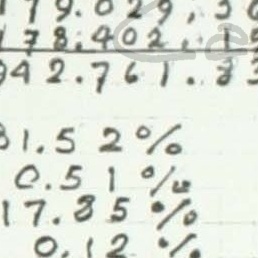 179.029,30
178.402,15
942.761.33
31.52%
0.51%
17.85%
0.12%